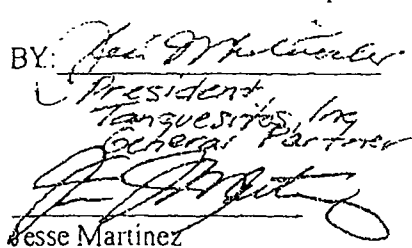 BY:
President
Tanquesitos, Inc
General Partner
Jesse Martinez